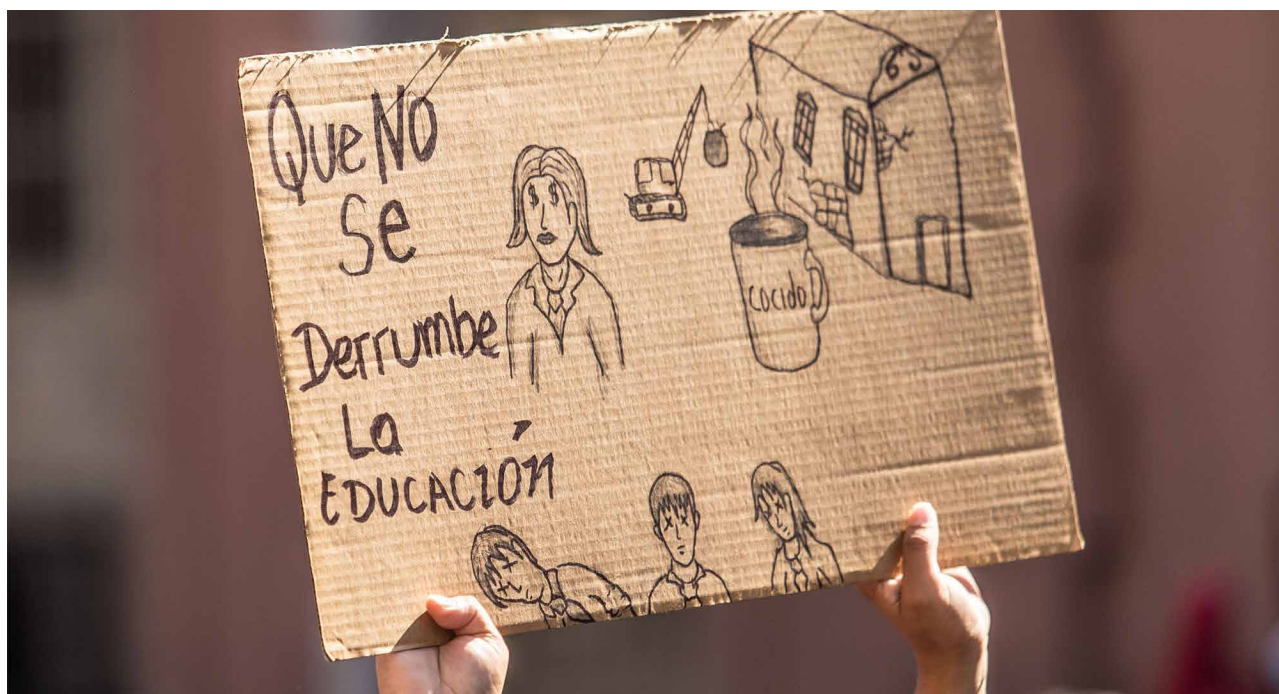 Que NO
Se
Derrumbe
La
EDUCACIÓN
COCIDO